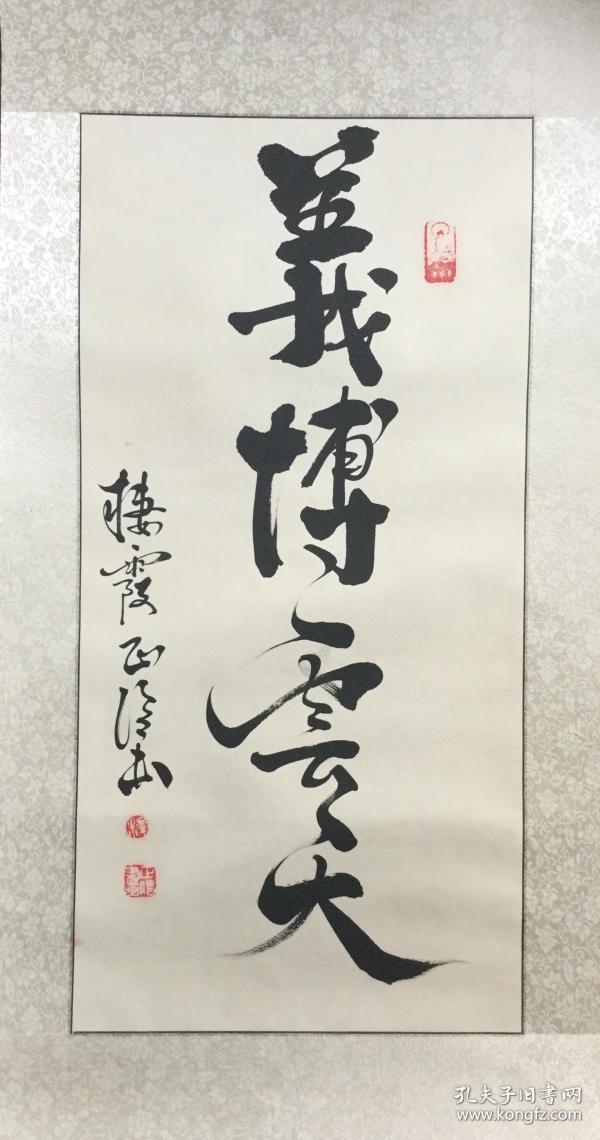 義博雲天
棲霞
孔夫子旧書网
www.kongfz.com